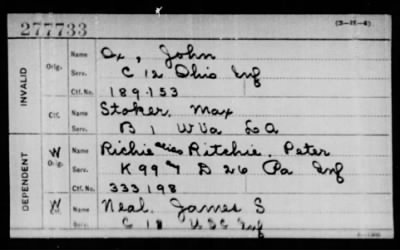 277733
(3-H-4)
INVALID
Orig. Name Ox, John
Serv. C 12 Ohio Inf
Ctf. No. 189.153
Ctf. Name Stoker, Max
Serv. B 1 W Va L A
DEPENDENT
W Orig. Name Richie alias Ritchie, Peter
Serv. K 99 & D 26 Pa Inf
Ctf. No. 333198
W Ctf. Name Neal, James S
Serv. C 18 U.S.C. Inf